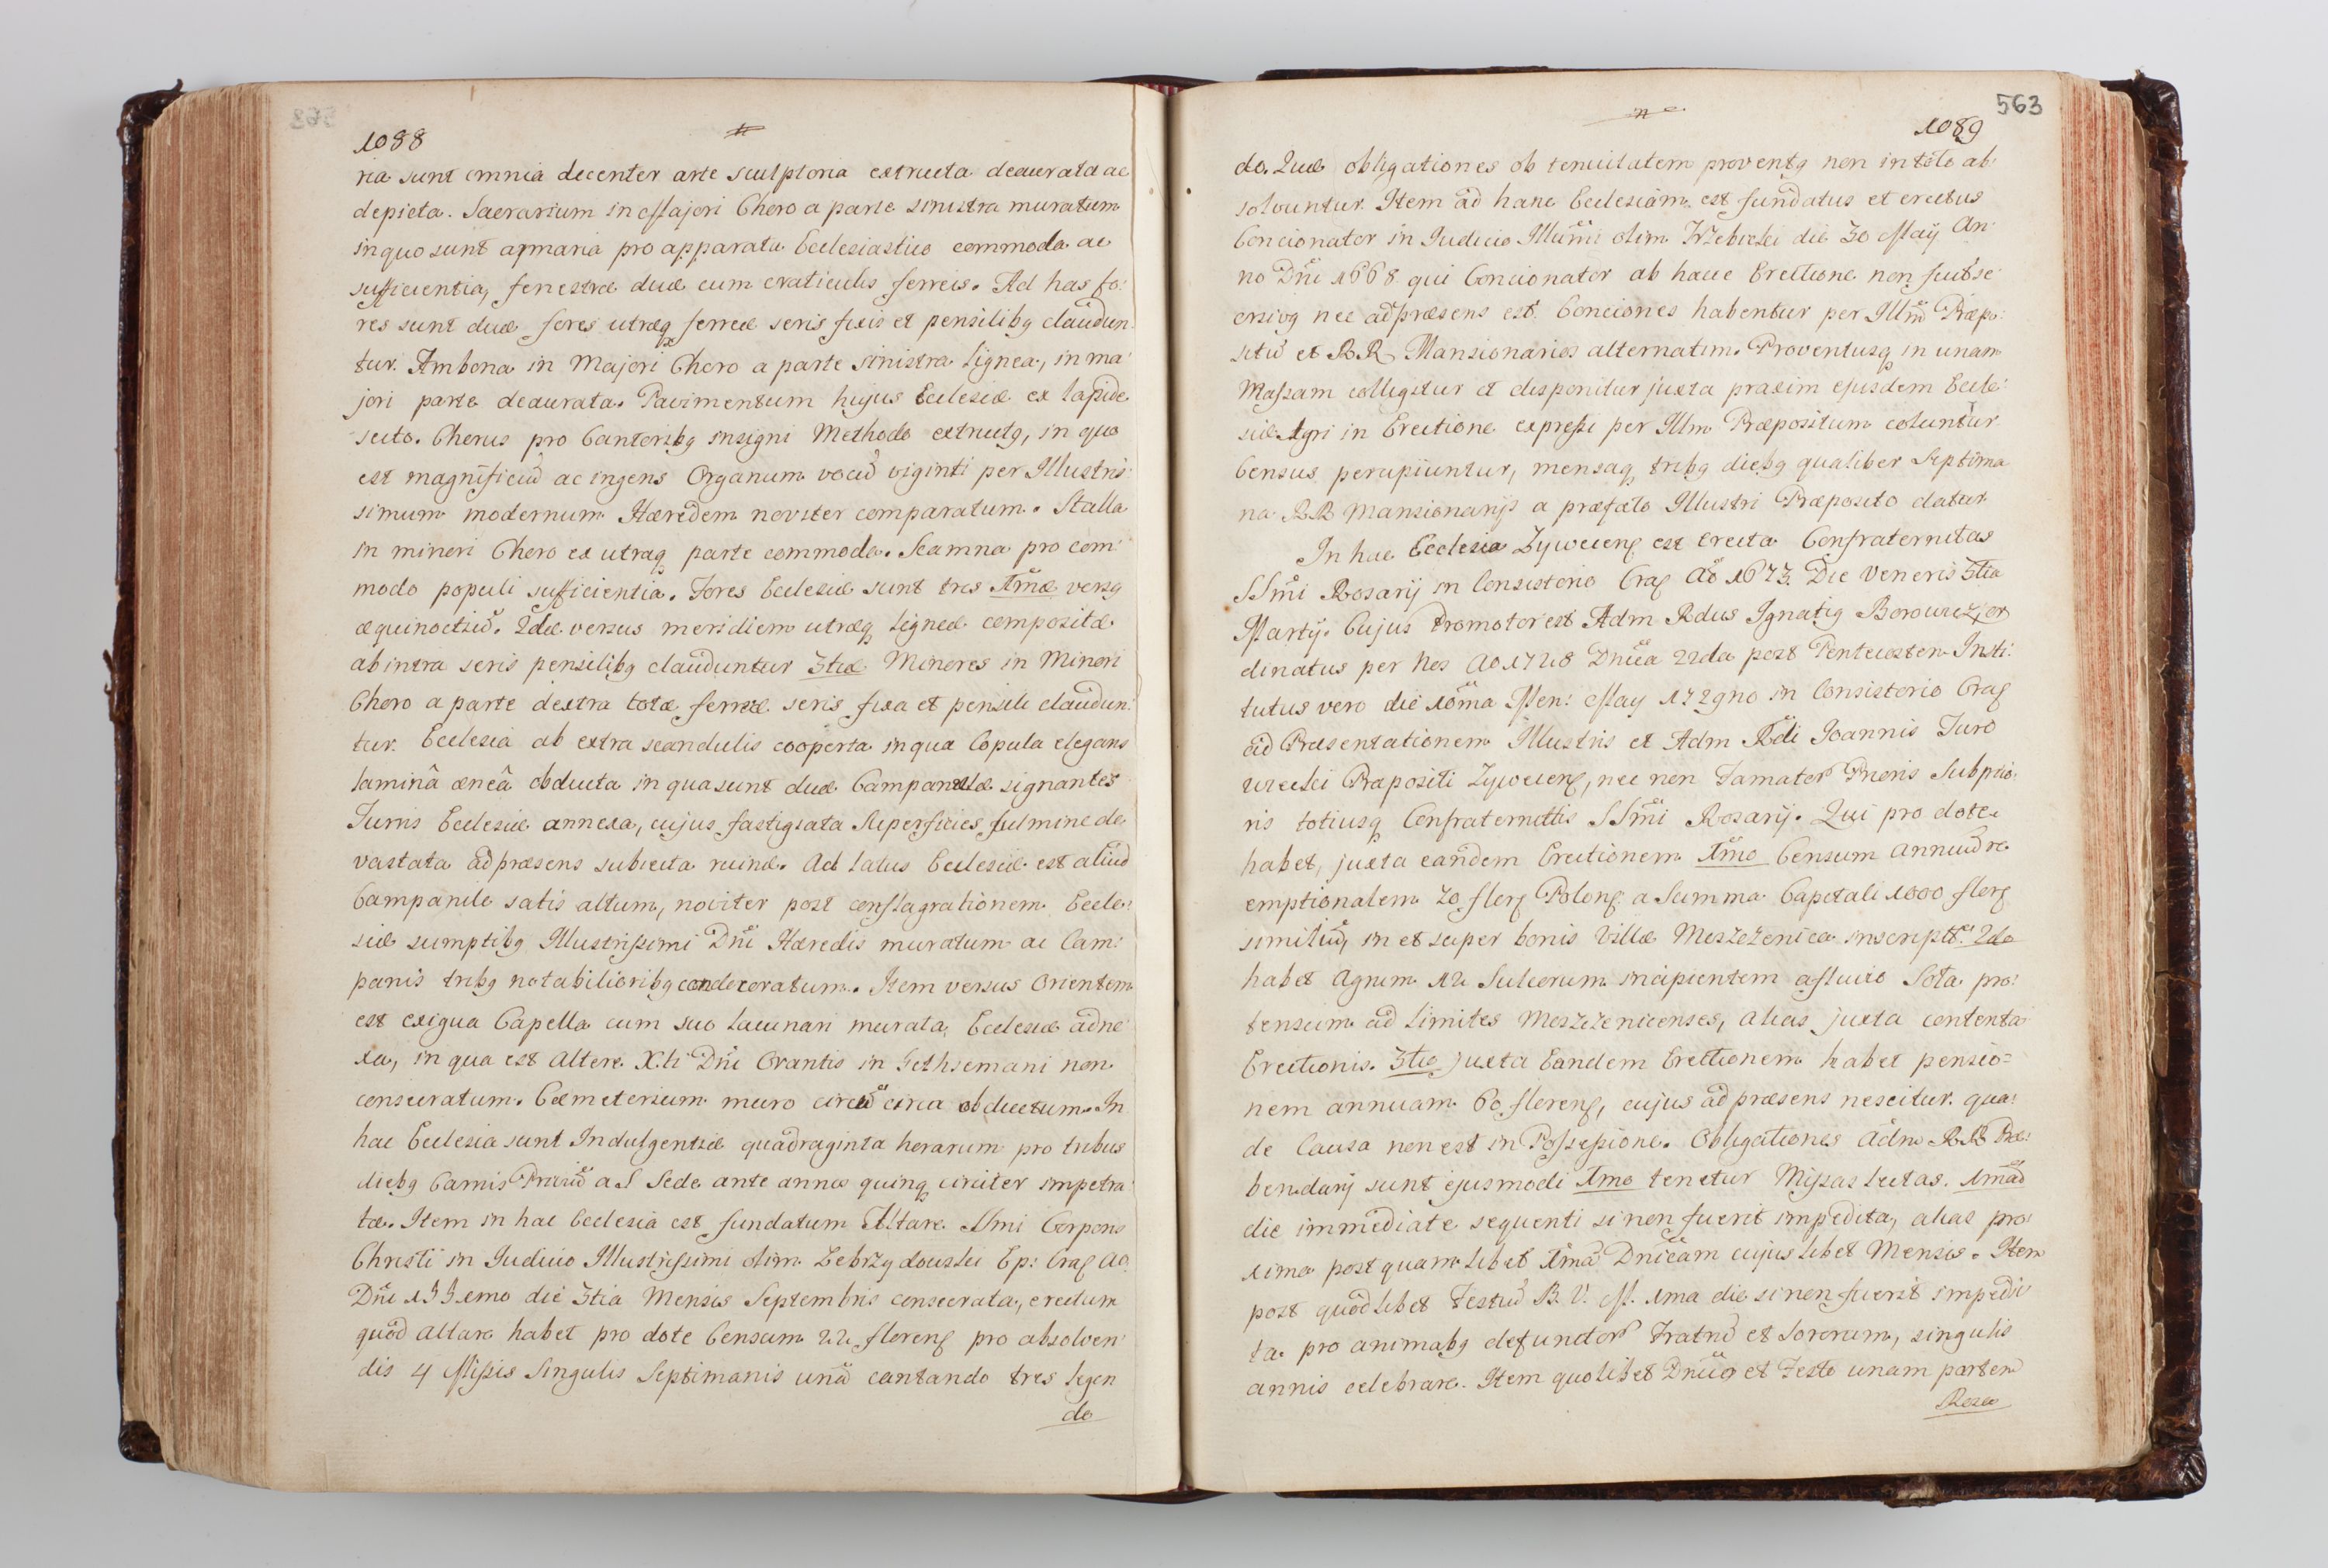 1088
ria sunt omnia decenter arte sculptoria extructa deaurata ac
depicta. Sacrarium in Majori Choro a parte sinistra muratum
in quo sunt armaria pro apparatu Ecclesiastico commoda ac
sufficientia, fenestræ duæ cum craticulis ferreis. Ad has fo:
res sunt duæ fores utræq ferreæ seris fixis et pensilibq claudun:
tur. Ambona in Majori Choro a parte sinistra lignea, in ma:
jori parte deaurata. Pavimentum hujus Ecclesiæ ex lapide
secto. Chorus pro Cantoribq insigni Methodo extructq, in quo
est magnificũ ac ingens Organum vocũ viginti per Illustris:
simum modernum Hæredem noviter comparatum. Stalla
in minori Choro ex utraq parte commoda. Scamna pro com:
modo populi sufficientia. Fores Ecclesiæ sunt tres 1mæ versq
æquinoctiũ. 2dæ versus meridiem utræq ligneæ compositæ
ab intra seris pensilibq clauduntur 3tiæ Minores in Minori
Choro a parte dextra totæ ferreæ seris fixa et pensili claudun:
tur. Ecclesia ab extra scandulis cooperta in qua Copula elegans
laminâ æneâ obducta in qua sunt duæ Campanulæ signantes
Turris Ecclesiæ annexa, cujus fastigiata Superficies fulmine de:
vastata ad præsens subjecta ruinæ. Ad latus Ecclesiæ est aliud
Campanile satis altum, noviter post conflagrationem Eccle:
siæ sumptibq Illustrissimi Dñi Hæredis muratum ac Cam:
panis tribq notabilioribq condecoratum. Item versus Orientem
est exigua Capella cum suo lacunari murata, Ecclesiæ adne
xa, in qua est Altare X.ti Dñi Orantis in Gethsemani non
consecratum. Cæmeterium muro circũ circa obductum. In
hac Ecclesia sunt Indulgentiæ quadraginta horarum pro tribus
diebq Carnis Priviũ a S Sede ante annos quinq circiter impetra
tæ. Item in hac Ecclesia est fundatum Altare SSmi Corporis
Christi in Judicio Illustrissimi olim Zebrzydowski Ep: Crac Ao
Dñi 1551mo die 3tia Mensis Septembris consecrata, erectum
quod Altare habet pro dote Censum 22 floren pro absolven:
dis 4 Missis Singulis Septimanis unã cantando tres legen
do
563
1089
do. Quæ obligationes ob tenuitatem proventq non in toto ab:
solvuntur. Item ad hanc Ecclesiam est fundatus et erectus
Concionator in Judicio Illũmi olim Trzebicki die 30 Maij An:
no Dñi 1668 qui Concionator ab hacce Erectione non fuit se:
nec ad præsens est. Conciones habentur per Illm̃ Præpo:
sitũ et RR Mansionarios alternatim. Proventusq in unam
Massam colligitur et disponitur juxta praxim ejusdem Eccle:
siæ. Agri in Erectione expressi per Illm Præpositum coluntur
Census percipiuntur, mensaq tribq diebq qualibet Septima
na RR Mansionarijs a præfato Illustri Præposito datur
In hac Ecclesia Zywiecen est erecta Confraternitas
SSmi Rosarij in Consistorio Crac Ao 1673 Die Veneris 3tia
Martij. Cujus Promotor est Adm Rdus Ignatiq Borowicz, or
dinatus per Nos Ao 1728 Dnica 22da post Pentecosten Insti:
tutus vero die 10ma Men: May 1729no in Consistorio Crac
ad Præsentationem Illustris et Adm Rdi Joannis Turo
wiecki Præpositi Zywiecen, nec non Famator Prioris Subprio:
ris totiusq Confraternittis SSmi Rosarij. Qui pro dote
habet, juxta eandem Erectionem 1mo Censum annuũ re
emptionalem 70 flor Polon a Summa Capitali 1000 flor
similiũ, in et super bonis Villæ Meszczenica inscript. 2do
habet Agrum 12 Sulcorum incipientem a fluvio Sola pro:
tensum ad limites Meszczenicenses, alias juxta contenta
Erectionis. 3tio juxta Eandem Erectionem habet pensio=
nem annuam 60 floren, cujus ad præsens nescitur qua:
de Causa non est in Possessione. Obligationes Adm RR Præ:
bendarij sunt ejusmodi 1mo tenetur Missas lectas. 1mã
die immediate sequenti si non fuerit impedita, alias pro:
xima post quamlibet 1mã Dnicam cujuslibet Mensis. Item
post quodlibet Festũ B.V.M. 1ma die si non fuerit impedi:
ta pro animabq defunctor Fratrũ et Sororum, singulis
annis celebrare. Item quolibet Dnico et Festo unam partem
Rosa